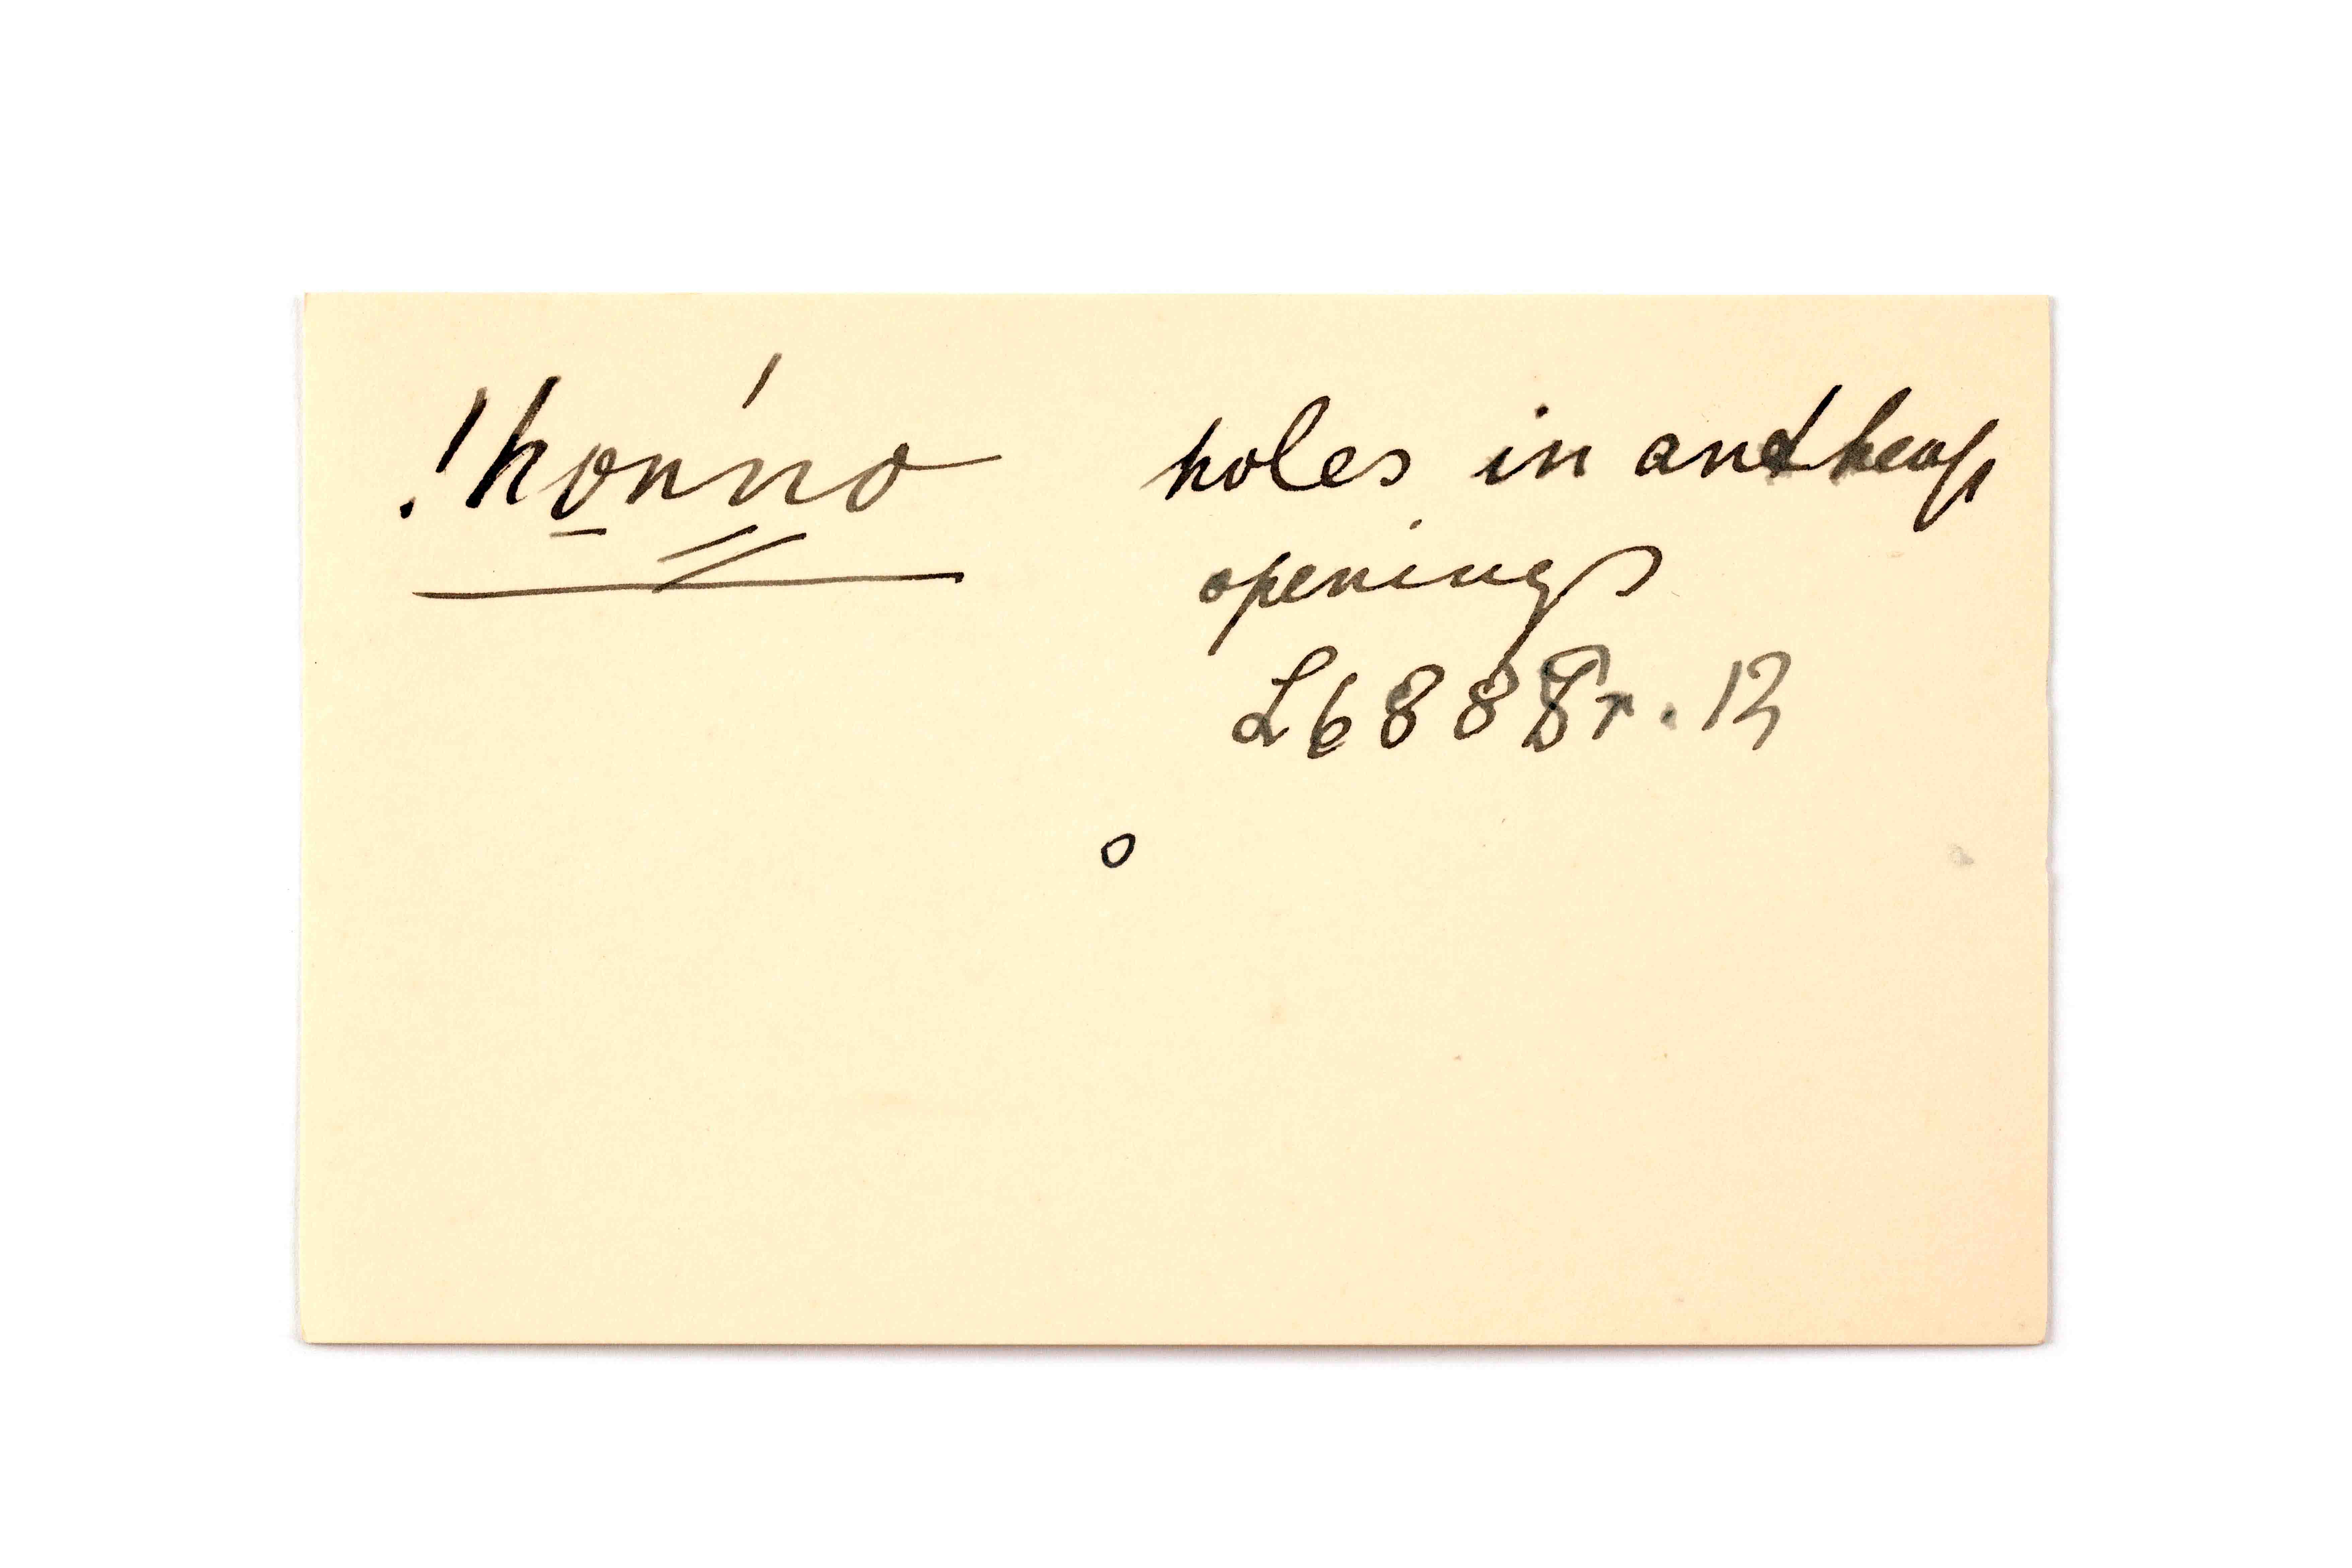 !ho̱nńo holes in antheap
openings
L 6888r. 12